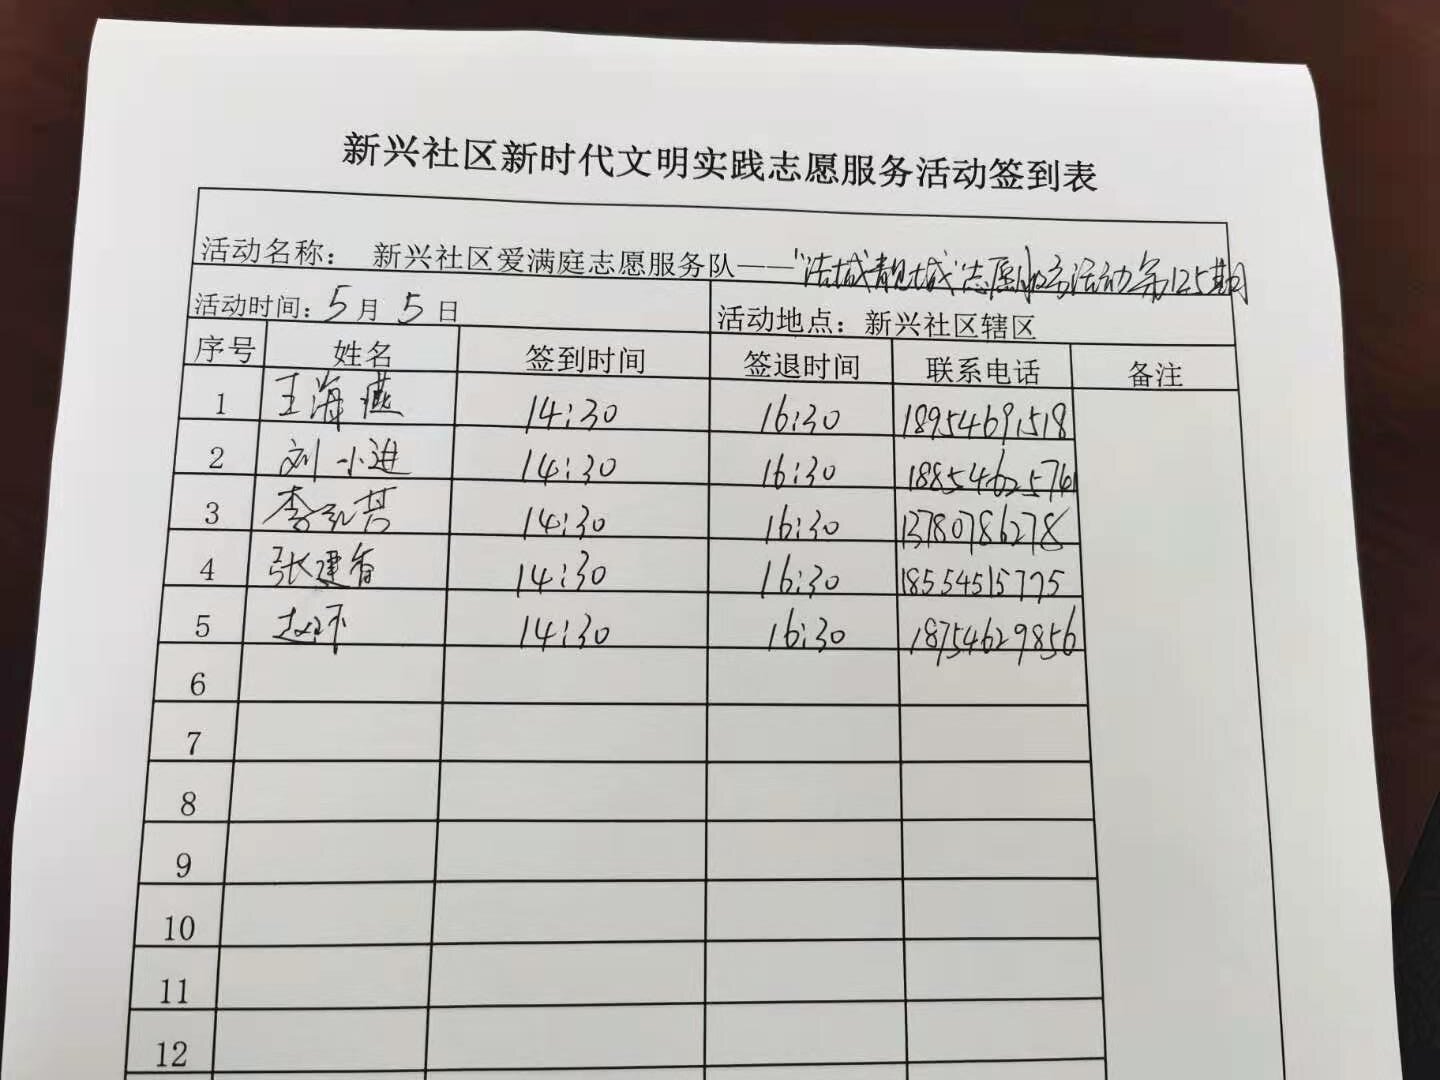 新兴社区新时代文明实践志愿服务活动签到表
活动名称： 新兴社区爱满庭志愿服务队——“洁城靓城”志愿服务活动第125期
活动时间：5月5日 活动地点：新兴社区辖区
序号 姓名 签到时间 签退时间 联系电话 备注
1 王海燕 14:30 16:30 18954691518
2 刘小进 14:30 16:30 18854625741
3 李 14:30 16:30 13780786278
4 张建香 14:30 16:30 18554515775
5 赵环 14:30 16:30 18754629856
6
7
8
9
10
11
12